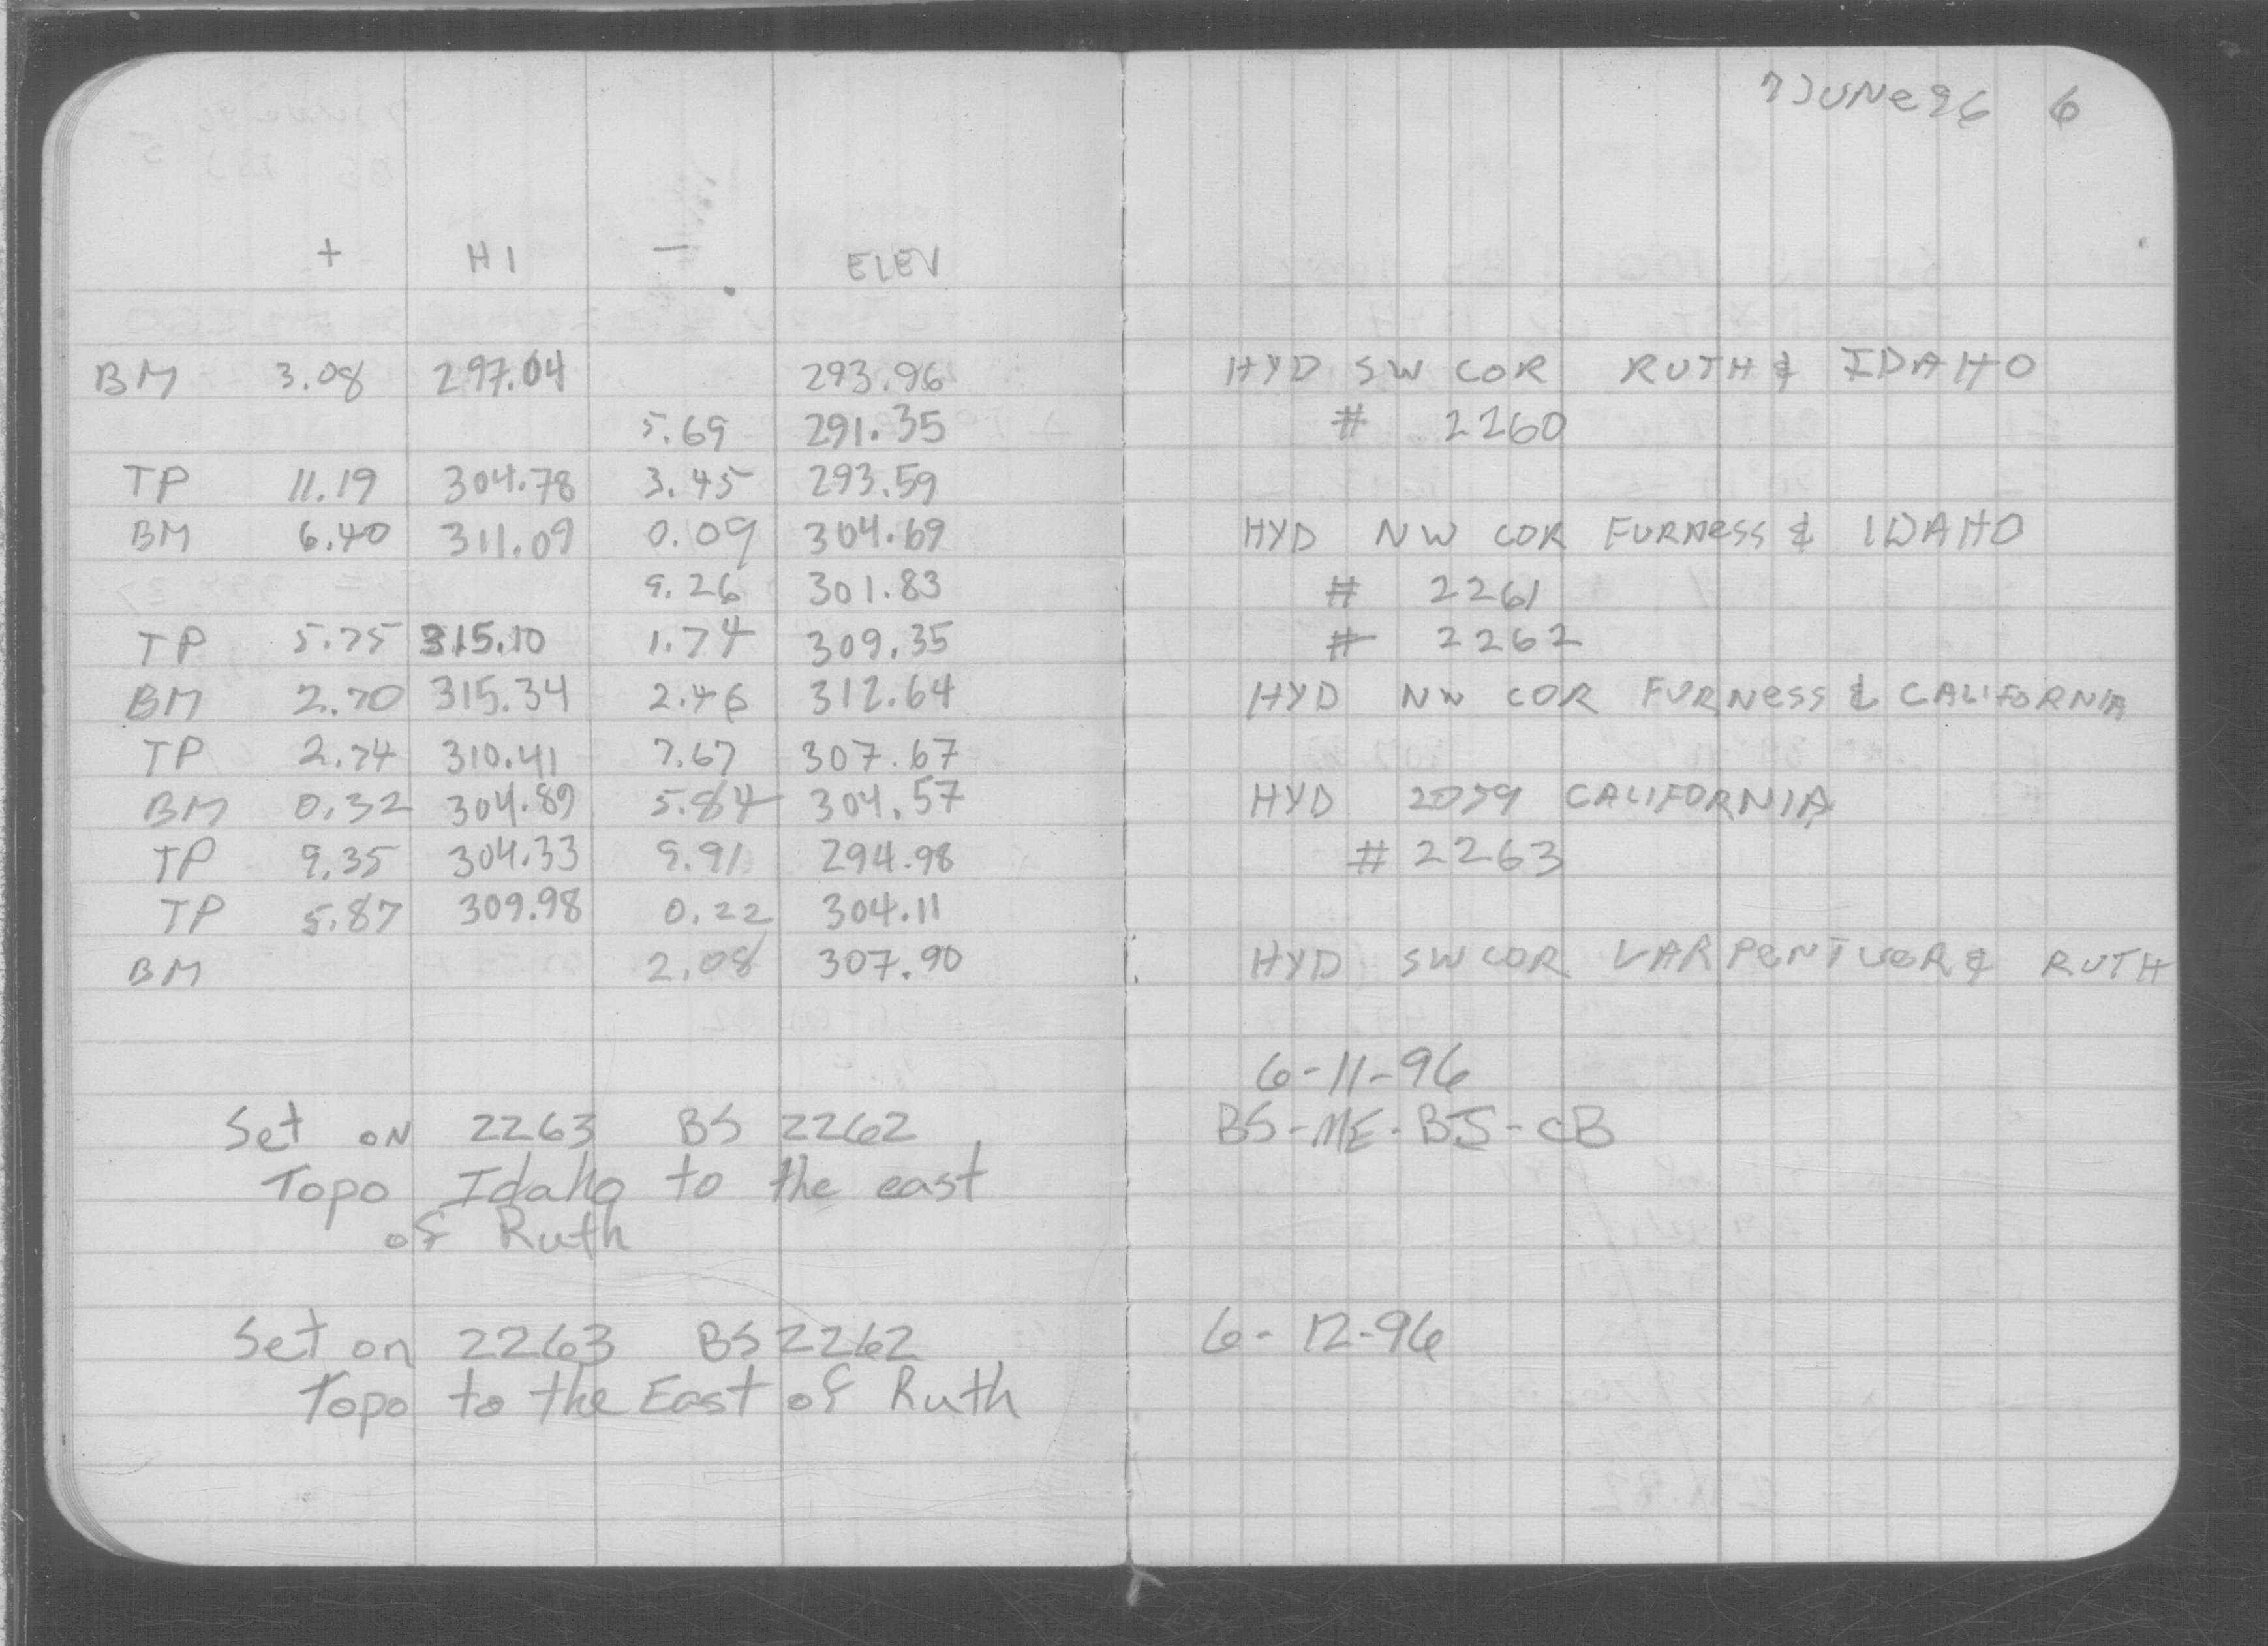 7 JUNE 96 6
+ HI - ELEV
BM 3.08 297.04 293.96 HYD SW COR RUTH & IDAHO
5.69 291.35 # 2260
TP 11.19 304.78 3.45 293.59
BM 6.40 311.09 0.09 304.69 HYD NW COR FURNESS & IDAHO
9.26 301.83 # 2261
TP 5.75 315.10 1.74 309.35 # 2262
BM 2.70 315.34 2.46 312.64 HYD NW COR FURNESS & CALIFORNIA
TP 2.74 310.41 7.67 307.67
BM 0.32 304.89 5.84 304.57 HYD 2059 CALIFORNIA
TP 9.35 304.33 9.91 294.98 # 2263
TP 5.87 309.98 0.22 304.11
BM 2.08 307.90 HYD SW COR LARPENTUER & RUTH
6-11-96
Set on 2263 BS 2262 BS-ME-BJ-CB
Topo Idaho to the east
of Ruth
Set on 2263 BS 2262 6-12-96
Topo to the East of Ruth